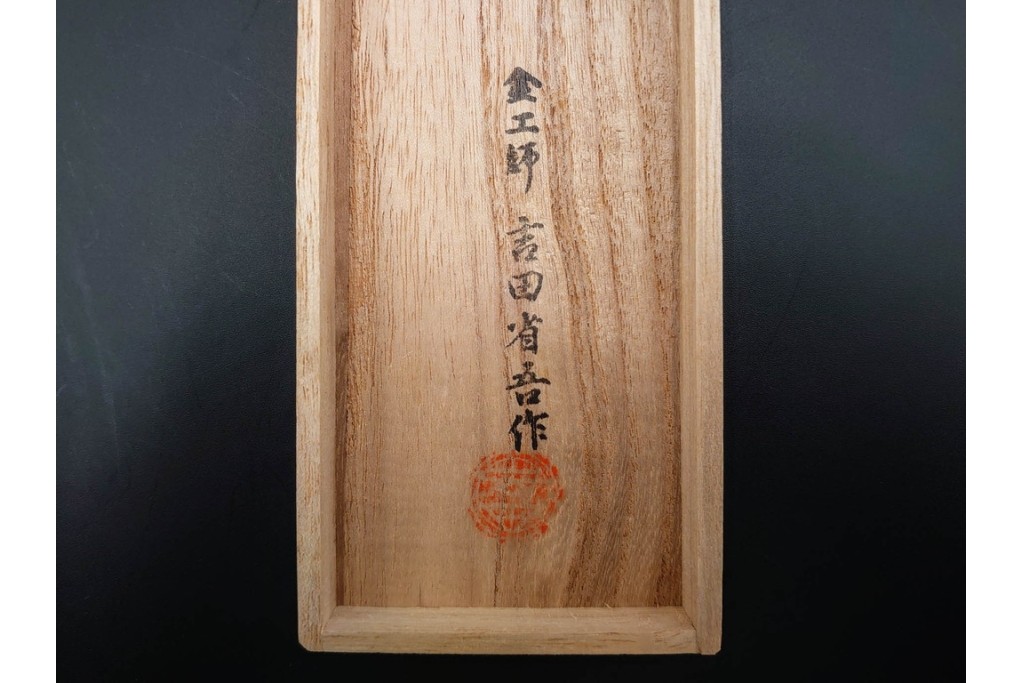 金工師 吉田省吾作